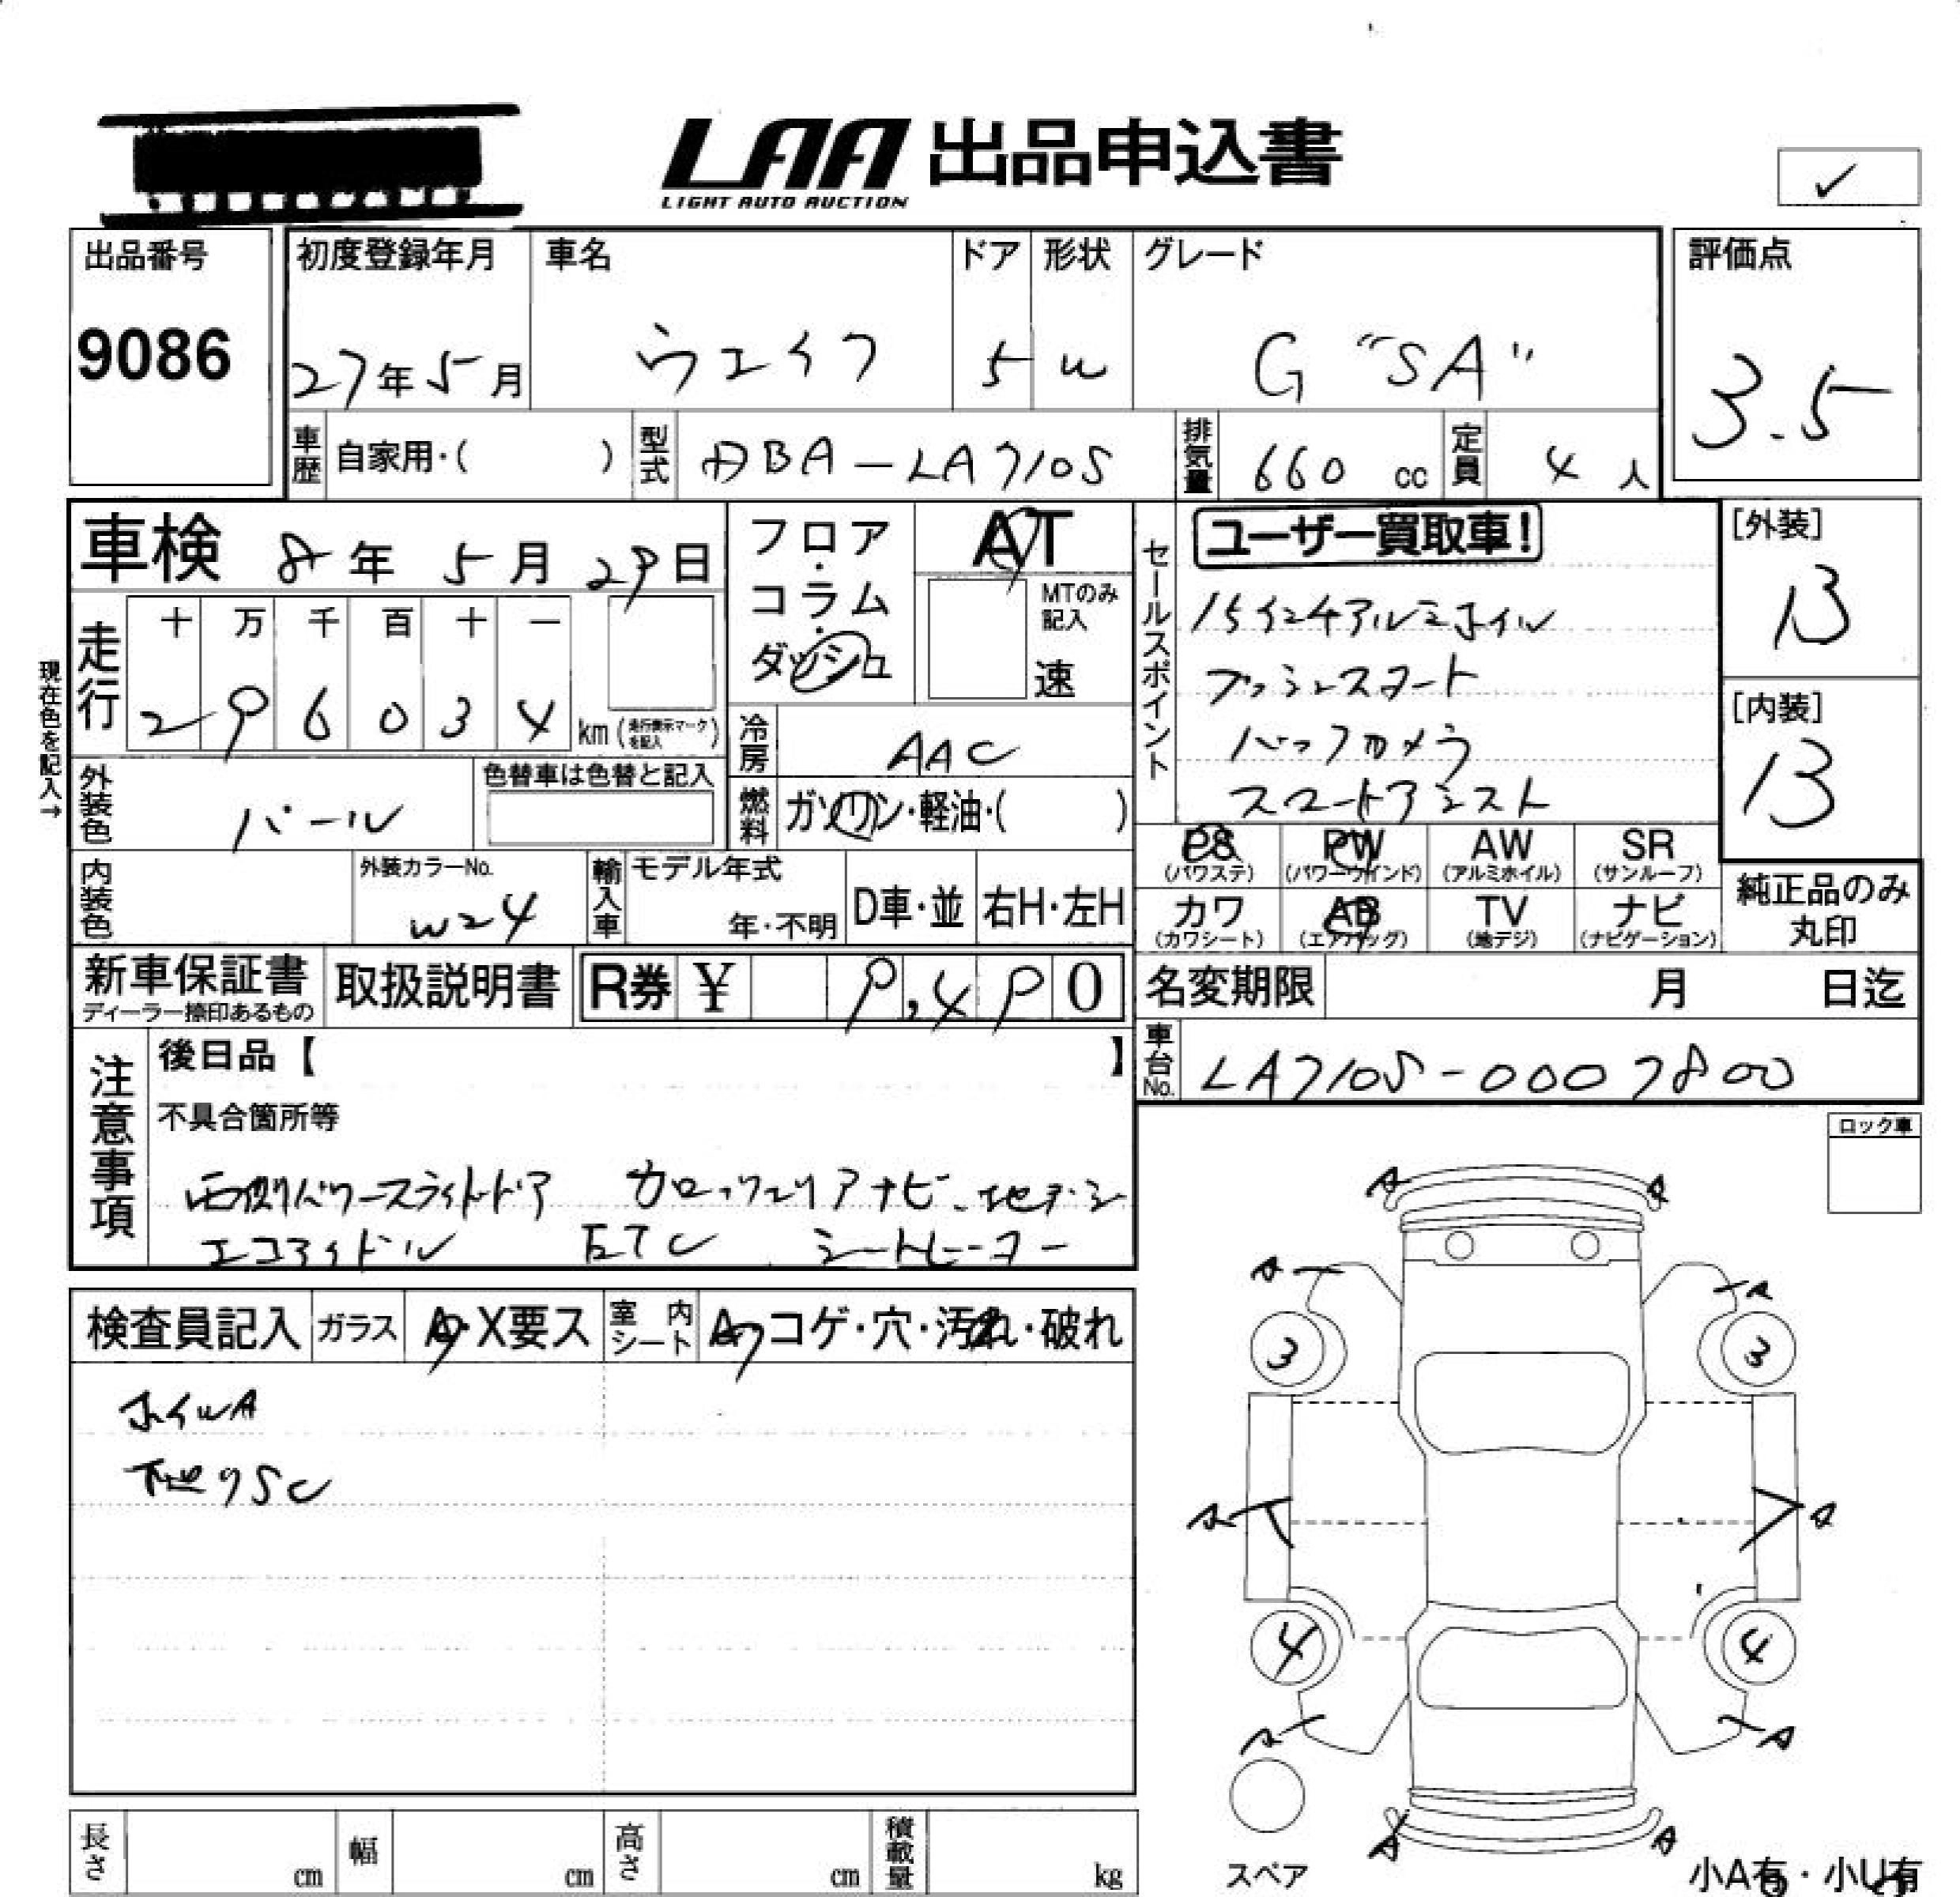 LAA 出品申込書
LIGHT AUTO AUCTION
✓
出品番号
9086
初度登録年月
27年5月
車名
ウエイク
ドア
5
形状
W
グレード
G "SA"
評価点
3.5
車歴 自家用・( )
型式 DBA-LA710S
排気量 660 cc
定員 4 人
車検 8年 5月 29日
フロア・コラム・ダッシュ
AT
MTのみ記入
速
現在色を記入→
走行
十 万 千 百 十 一
2 9 6 0 3 4 km (走行表示マークを記入)
冷房 AAC
外装色 パール
色替車は色替と記入
燃料 ガソリン・軽油・( )
内装色
外装カラーNo.
W24
輸入車
モデル年式
年・不明
D車・並
右H・左H
セールスポイント
ユーザー買取車!
15インチアルミホイル
プッシュスタート
バックカメラ
スマートアシスト
[外装]
B
[内装]
B
PS (パワステ) PW (パワーウインド) AW (アルミホイル) SR (サンルーフ)
カワ (カワシート) AB (エアバッグ) TV (地デジ) ナビ (ナビゲーション)
純正品のみ丸印
新車保証書
ディーラー捺印あるもの
取扱説明書
R券 ¥ 9,490
名変期限 月 日迄
車台No. LA710S-0007800
注意事項
後日品【 】
不具合箇所等
両側パワースライドドア カロッツェリアナビ 地デジ
エコアイドル ETC シートヒーター
ロック車
検査員記入 ガラス A・X要ス 室内シート A・コゲ・穴・汚れ・破れ
ホイルA
下廻りSC
A A
A A
3 3
A A
4 4
A A
A A
スペア
小A有・小U有
長さ cm 幅 cm 高さ cm 積載量 kg